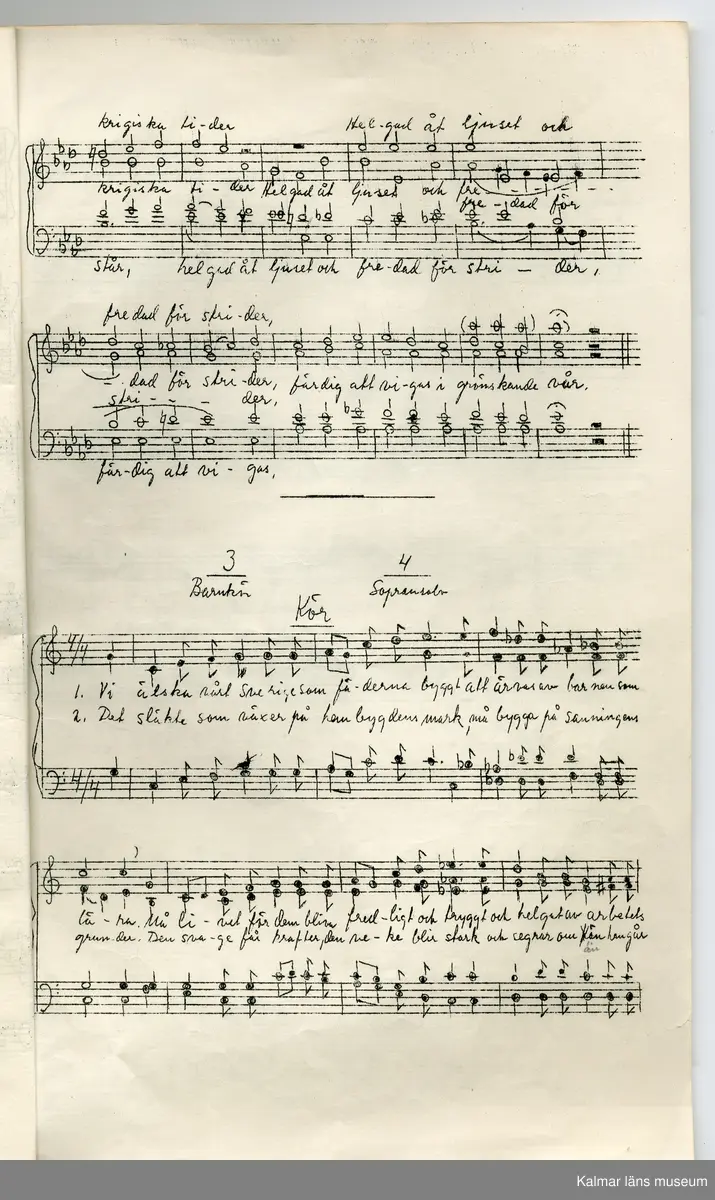 krigiska ti-der Hel-gad åt ljuset och
krigiska ti-der Helgad åt ljuset och fre - - -
fre-dad för
står, helgad åt ljuset och fre-dad för stri - der,
fredad för stri-der,
- dad för stri-der, färdig att vi-gas i grönskande vår.
stri - - - der,
fär-dig att vi-gas,
3 4
Barnkör Sopransolo
Kör
1. Vi älska vårt Sverige som fä-derna byggt att ärvas av barnen som
2. Det släkte som växer på hembygdens mark, må bygga på sanningens
lä-ka. Må li-vet för dem bliva fred-ligt och tryggt och helgat av arbetets
grun-der. Den sva-ge får krafter, den ve-ke blir stark och segrar om än han går
än
Kalmar läns museum